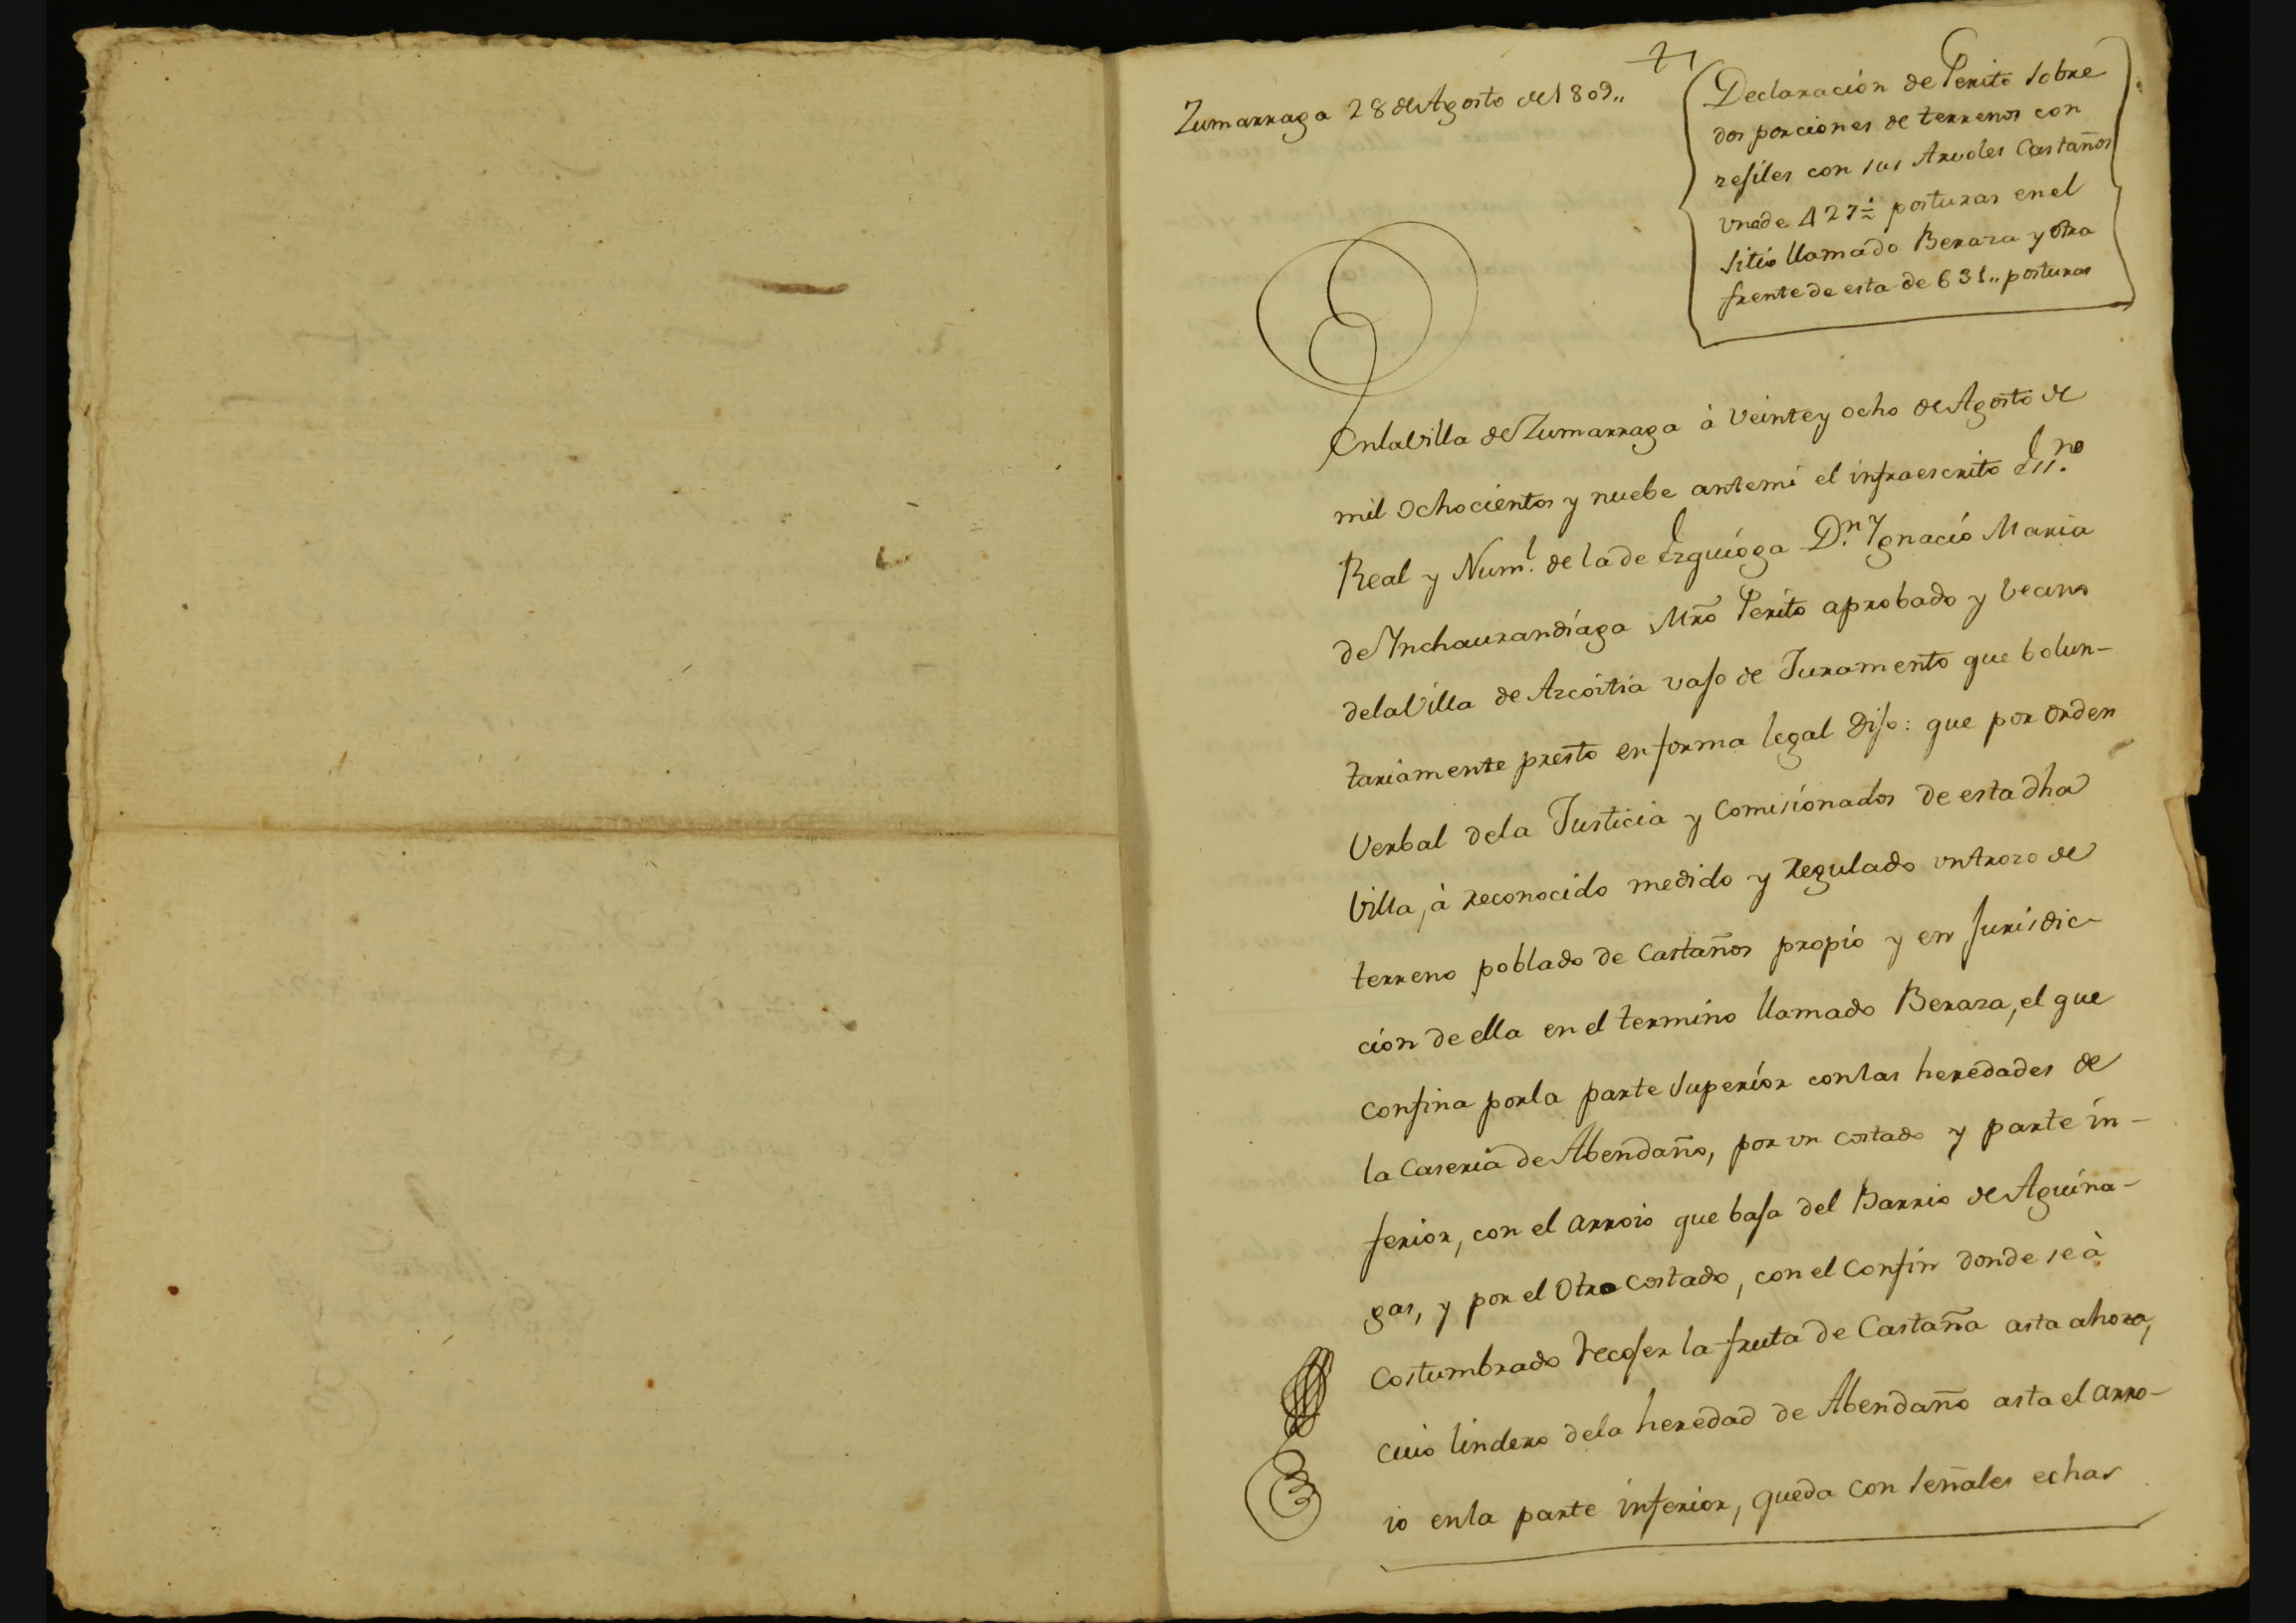 Zumarraga 28 de Agosto de 1809,,
Declaración de Perito sobre
dos porciones de terrenos con
refiles con sus Arvoles Castaños
vna de 427½ posturas en el
sitio llamado Beraza y otra
frente de esta de 631,, posturas
En la Villa de Zumarraga à veinte y ocho de Agosto de
mil ochocientos y nuebe ante mi el infraescrito Ess.no
Real y Num.l de la de Ezquioga D.n Ygnacio Maria
de Ynchaurandiaga Mrõ Perito aprobado y becino
de la Villa de Azcoitia vajo de Juramento que bolun-
tariamente presto en forma legal dijo: que por orden
Verbal de la Justicia y Comisionados de esta dha
Villa, à reconocido medido y regulado un trozo de
terreno poblado de Castaños propio y en Jurisdic-
ción de ella en el termino llamado Beraza, el que
confina por la parte superior con las heredades de
la Caseria de Abendaño, por vn costado y parte in-
ferior, con el arroio que baja del Barrio de Aguina-
gas, y por el otro costado, con el confin donde se à
costumbrado recojer la fruta de Castaña asta ahora,
cuio lindero de la heredad de Abendaño asta el arro-
io en la parte inferior, queda con señales echas